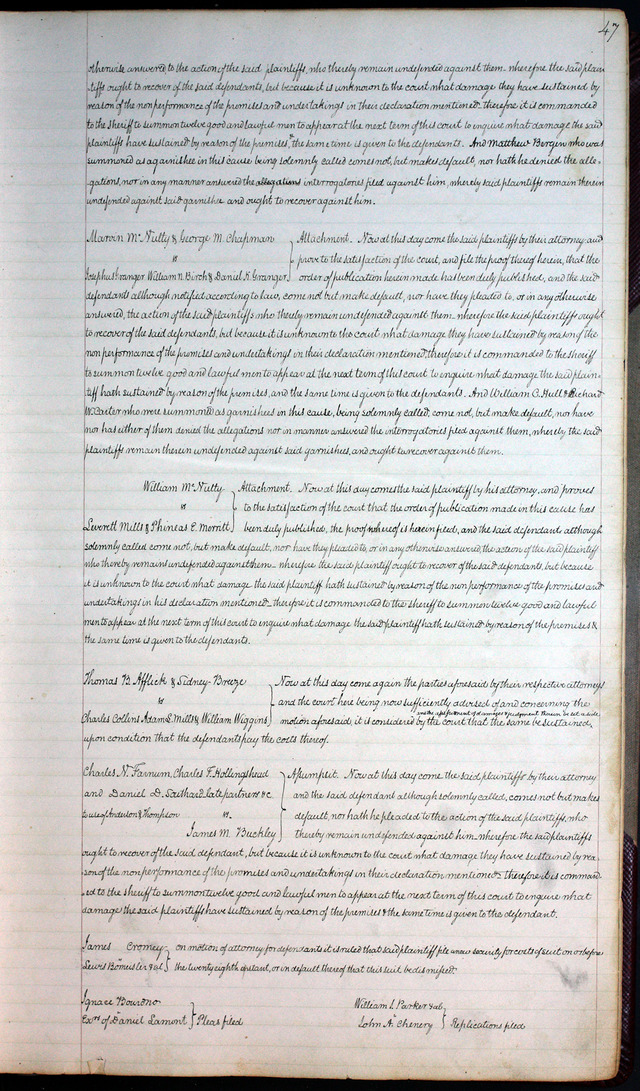 47
otherwise answered to the action of the said plaintiffs, who thereby remain undefended against them. wherefore the said plain-
tiffs ought to recover of the said defendants, but because it is unknown to the court what damage they have sustained by
reason of the non performance of the promises and undertakings in their declaration mentioned. therefore it is commanded
to the sheriff to summon twelve good and lawful men to appear at the next term of this court to enquire what damage the said
plaintiffs have sustained by reason of the premises, & the same time is given to the defendants. And Matthew Bergin who was
summoned as a garnishee in this cause being solemnly called comes not, but makes default, nor hath he denied the alle-
gations, nor in any manner answered the allegations interrogatories filed against him, whereby said plaintiffs remain therein
undefended against said garnishee and ought to recover against him.
Marvin McNulty & George M. Chapman } Attachment. Now at this day come the said plaintiffs by their attorney and
vs prove to the satisfaction of the court, and file the proof thereof herein, that the
Josephus Granger William N. Birch & Daniel K. Granger order of publication herein made has been duly published, and the said
defendants although notified according to law, come not but make default, nor have they pleaded to, or in any otherwise
answered, the action of the said plaintiffs who thereby remain undefended against them. wherefore the said plaintiffs ought
to recover of the said defendants, but because it is unknown to the court what damage they have sustained by reason of the
non performance of the promises and undertakings in their declaration mentioned, therefore it is commanded to the sheriff
to summon twelve good and lawful men to appear at the next term of this court to enquire what damage the said plain-
tiff hath sustained by reason of the premises, and the same time is given to the defendants. And William C. Hull & Richard
W. Carter who were summoned as garnishees in this cause, being solemnly called, come not, but make default, nor have
nor has either of them denied the allegations nor in manner answered the interrogatories filed against them, whereby the said
plaintiffs remain therein undefended against said garnishees, and ought to recover against them.
William McNulty } Attachment. Now at this day comes the said plaintiff by his attorney, and proves
vs to the satisfaction of the court that the order of publication made in this cause has
Leverett Mills & Phineas E. Merritt been duly published, the proof whereof is herein filed, and the said defendants although
solemnly called come not, but make default, nor have they pleaded to, or in any otherwise answered, the action of the said plaintiff
who thereby remains undefended against them. wherefore the said plaintiff ought to recover of the said defendants, but because
it is unknown to the court what damage the said plaintiff hath sustained by reason of the non performance of the promises and
undertakings in his declaration mentioned. therefore it is commanded to the sheriff to summon twelve good and lawful
men to appear at the next term of this court to enquire what damage the said plaintiff hath sustained by reason of the premises &
the same time is given to the defendants.
Thomas B. Afflick & Sidney Breeze } Now at this day come again the parties aforesaid by their respective attorneys
vs and the court here being now sufficiently advised of and concerning the
Charles Collins Adam L. Mills & William Wiggins motion aforesaid, it is considered by the court that the same be sustained,
and the assessment of damages & judgment therein be set aside
upon condition that the defendants pay the costs thereof.
Charles N. Farnum, Charles F. Hollingshead } Assumpsit. Now at this day come the said plaintiffs by their attorney
and Daniel D. late partners &c and the said defendant although solemnly called, comes not but makes
to use of Anderson & Thompson vs. default, nor hath he pleaded to the action of the said plaintiffs, who
James M. Buckley thereby remain undefended against him. wherefore the said plaintiffs
ought to recover of the said defendant, but because it is unknown to the court what damage they have sustained by rea-
son of the non performance of the promises and undertakings in their declaration mentioned. therefore it is command-
ed to the sheriff to summon twelve good and lawful men to appear at the next term of this court to enquire what
damage the said plaintiffs have sustained by reason of the premises & the same time is given to the defendant.
James Cromey } on motion of attorney for defendants it is ruled that said plaintiff file anew security for costs of suit on or before
Lewis et al. the twenty eighth instant, or in default thereof that this suit be dismissed.
Ignace Bourdno } William L. Parker et al }
Exrs of Daniel Lamont Pleas filed John A. Chenery Replications filed